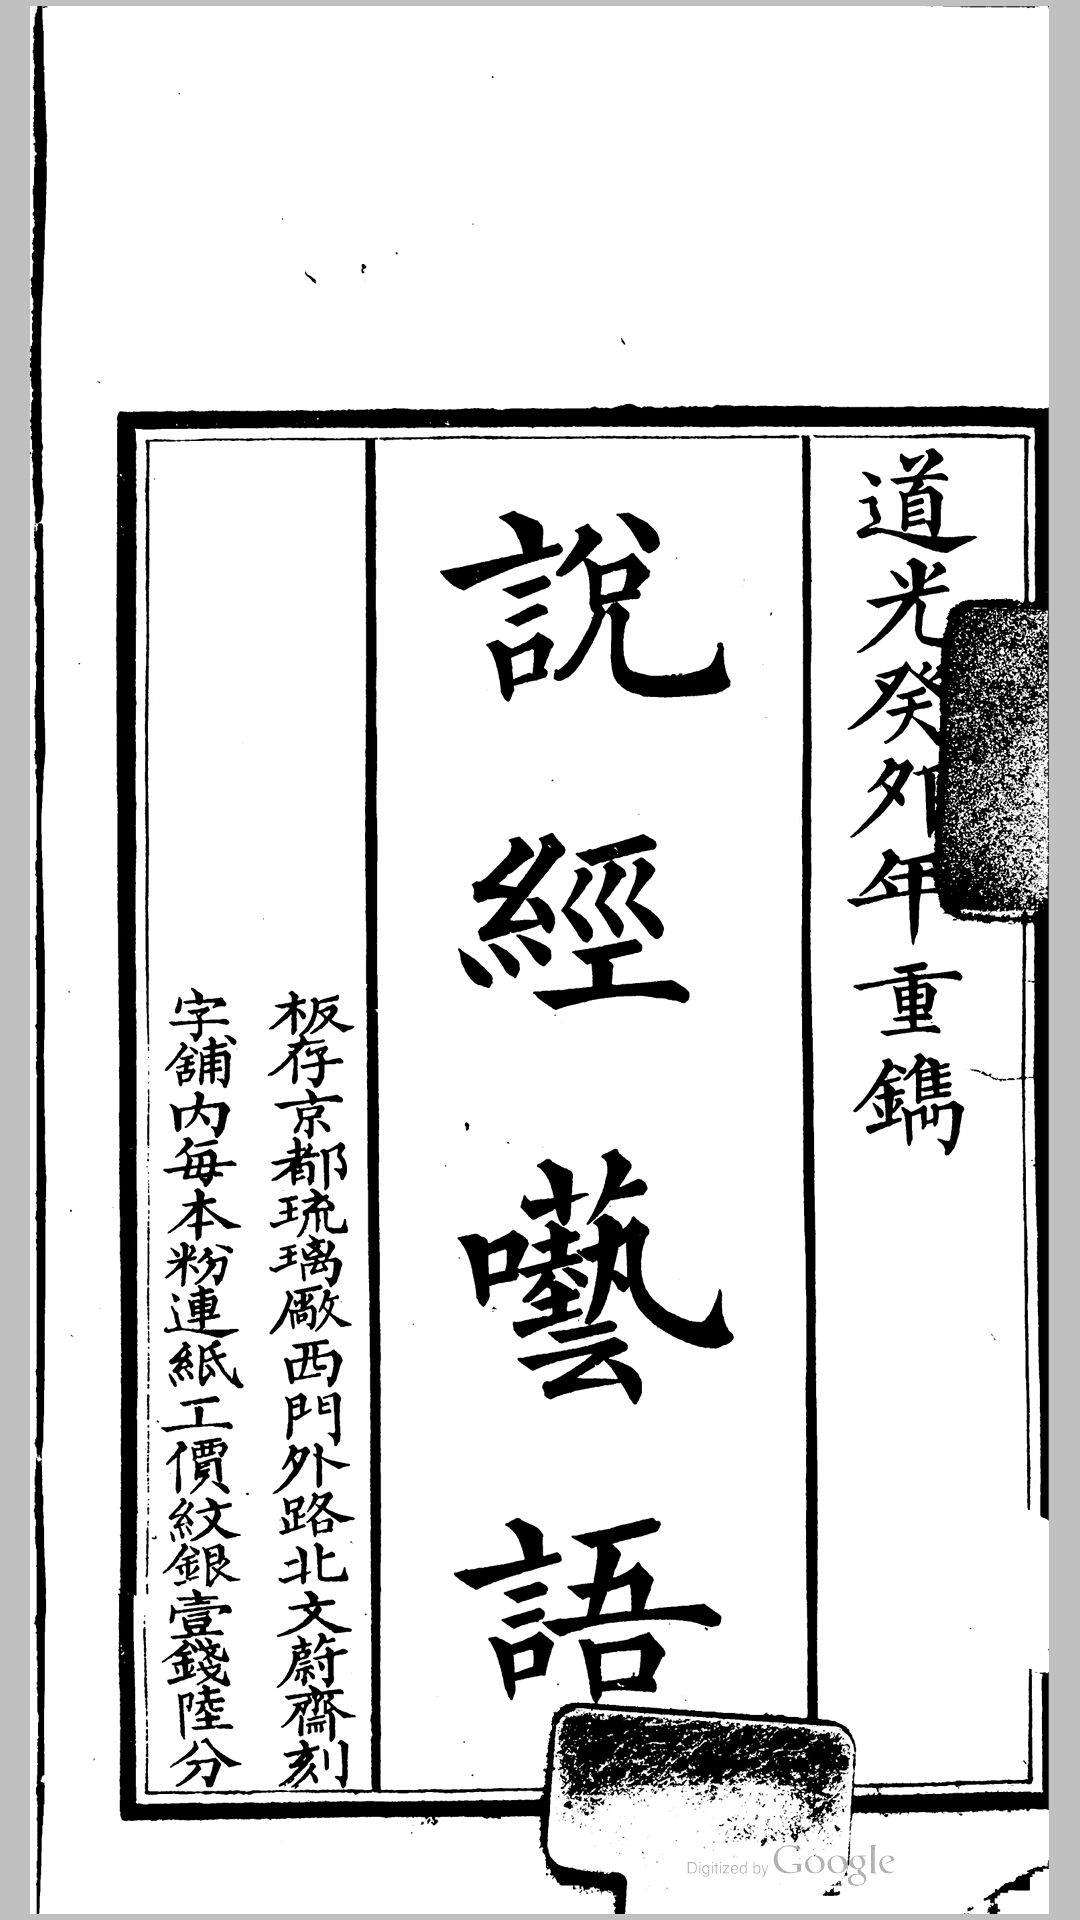 道光癸卯年重鐫
說經囈語
板存京都琉璃廠西門外路北文蔚齋刻
字舖內每本粉連紙工價紋銀壹錢陸分
Digitized by Google